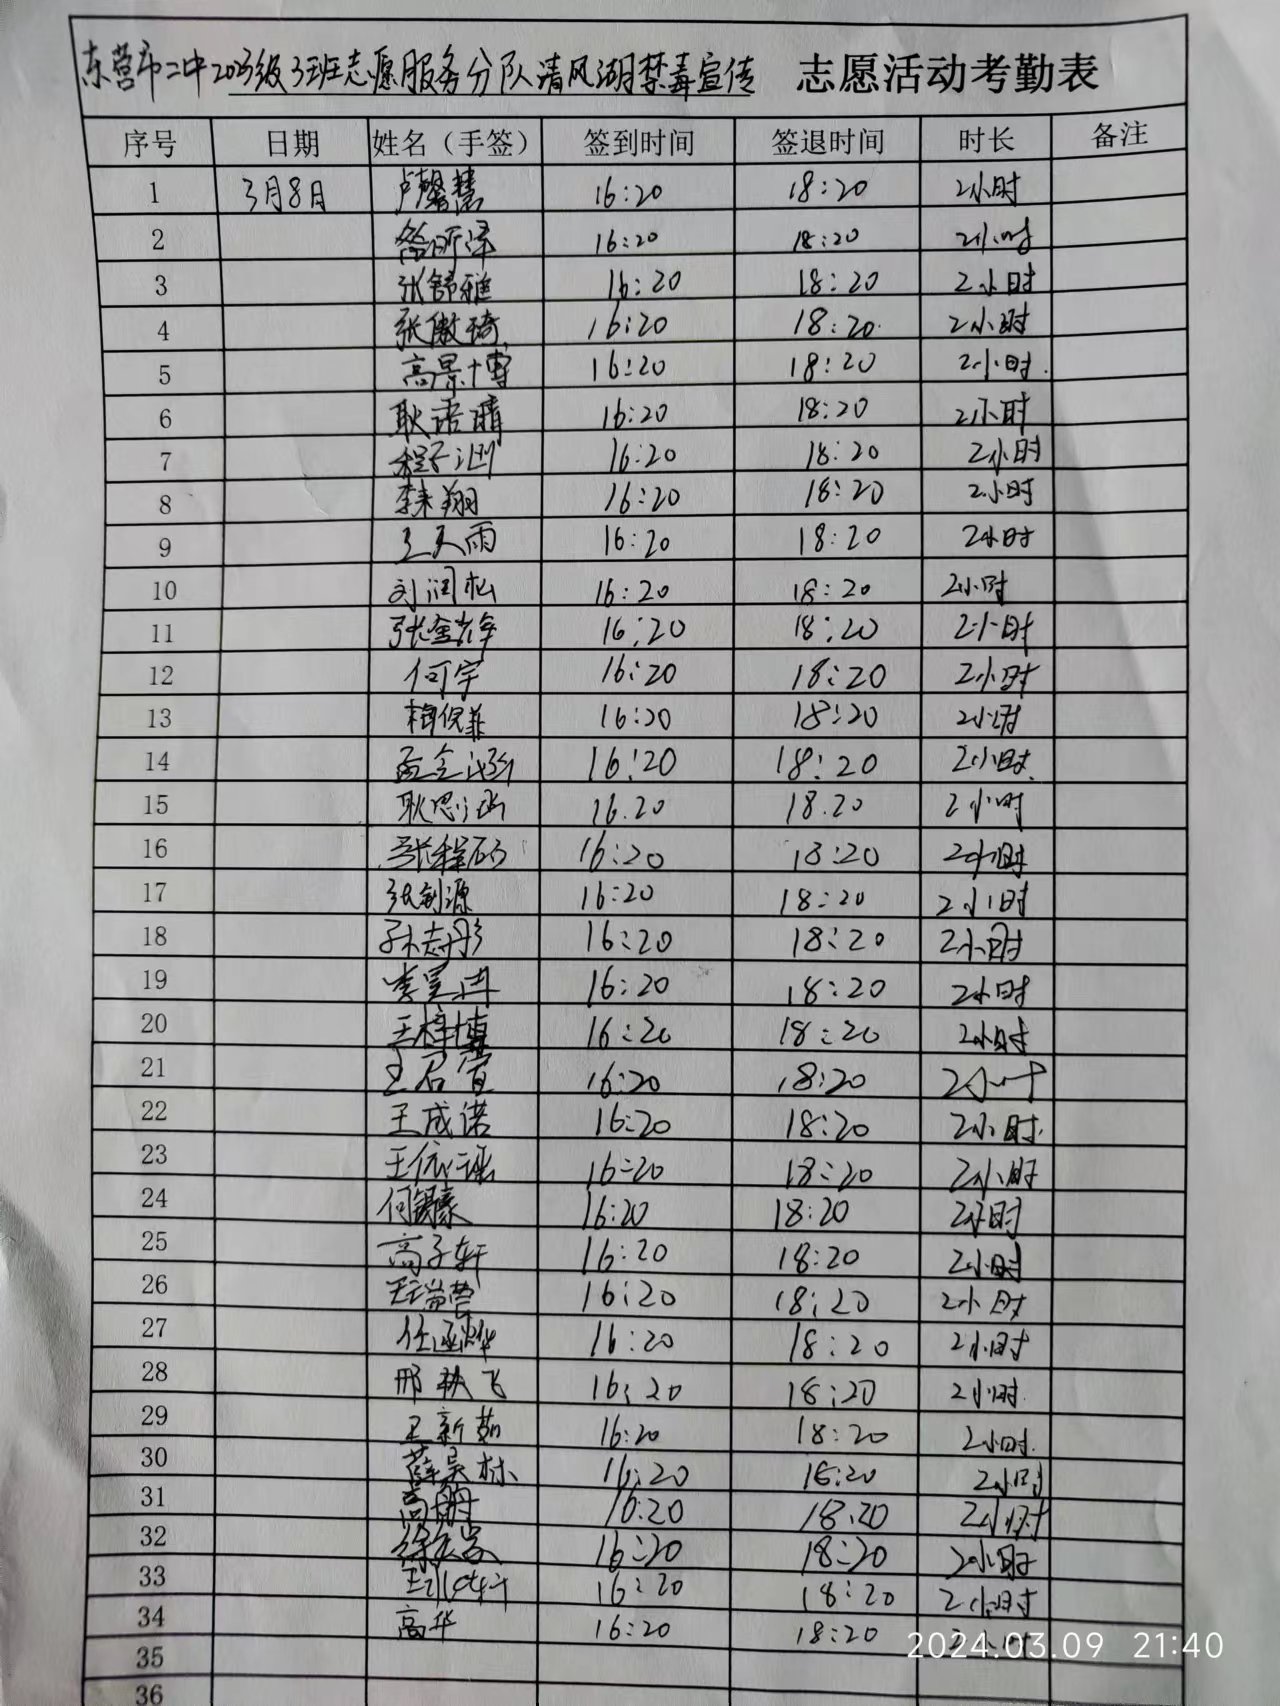 东营市二中2023级3班志愿服务分队清风湖禁毒宣传 志愿活动考勤表
序号 日期 姓名（手签） 签到时间 签退时间 时长 备注
1 3月8日 卢馨慧 16:20 18:20 2小时
2 16:20 18:20 2小时
3 张舒雅 16:20 18:20 2小时
4 张傲琦 16:20 18:20 2小时
5 高景博 16:20 18:20 2小时
6 耿语晴 16:20 18:20 2小时
7 程子涵 16:20 18:20 2小时
8 李来翔 16:20 18:20 2小时
9 王天雨 16:20 18:20 2小时
10 刘润松 16:20 18:20 2小时
11 张金峰 16:20 18:20 2小时
12 何宇 16:20 18:20 2小时
13 16:20 18:20 2小时
14 孟令涵 16:20 18:20 2小时
15 耿思涵 16.20 18.20 2小时
16 张程硕 16:20 18:20 2小时
17 张剑源 16:20 18:20 2小时
18 孙志彤 16:20 18:20 2小时
19 李昊冉 16:20 18:20 2小时
20 王梓博 16:20 18:20 2小时
21 王君宜 16:20 18:20 2小时
22 王成诺 16:20 18:20 2小时
23 王依瑶 16:20 18:20 2小时
24 何毓豪 16:20 18:20 2小时
25 高子轩 16:20 18:20 2小时
26 王瑞营 16:20 18:20 2小时
27 任函烨 16:20 18:20 2小时
28 邢秩飞 16:20 18:20 2小时
29 王新茹 16:20 18:20 2小时
30 薛昊林 16:20 18:20 2小时
31 高朋 16:20 18:20 2小时
32 16:20 18:20 2小时
33 16:20 18:20 2小时
34 高华 16:20 18:20 2小时
35
36
2024.03.09 21:40